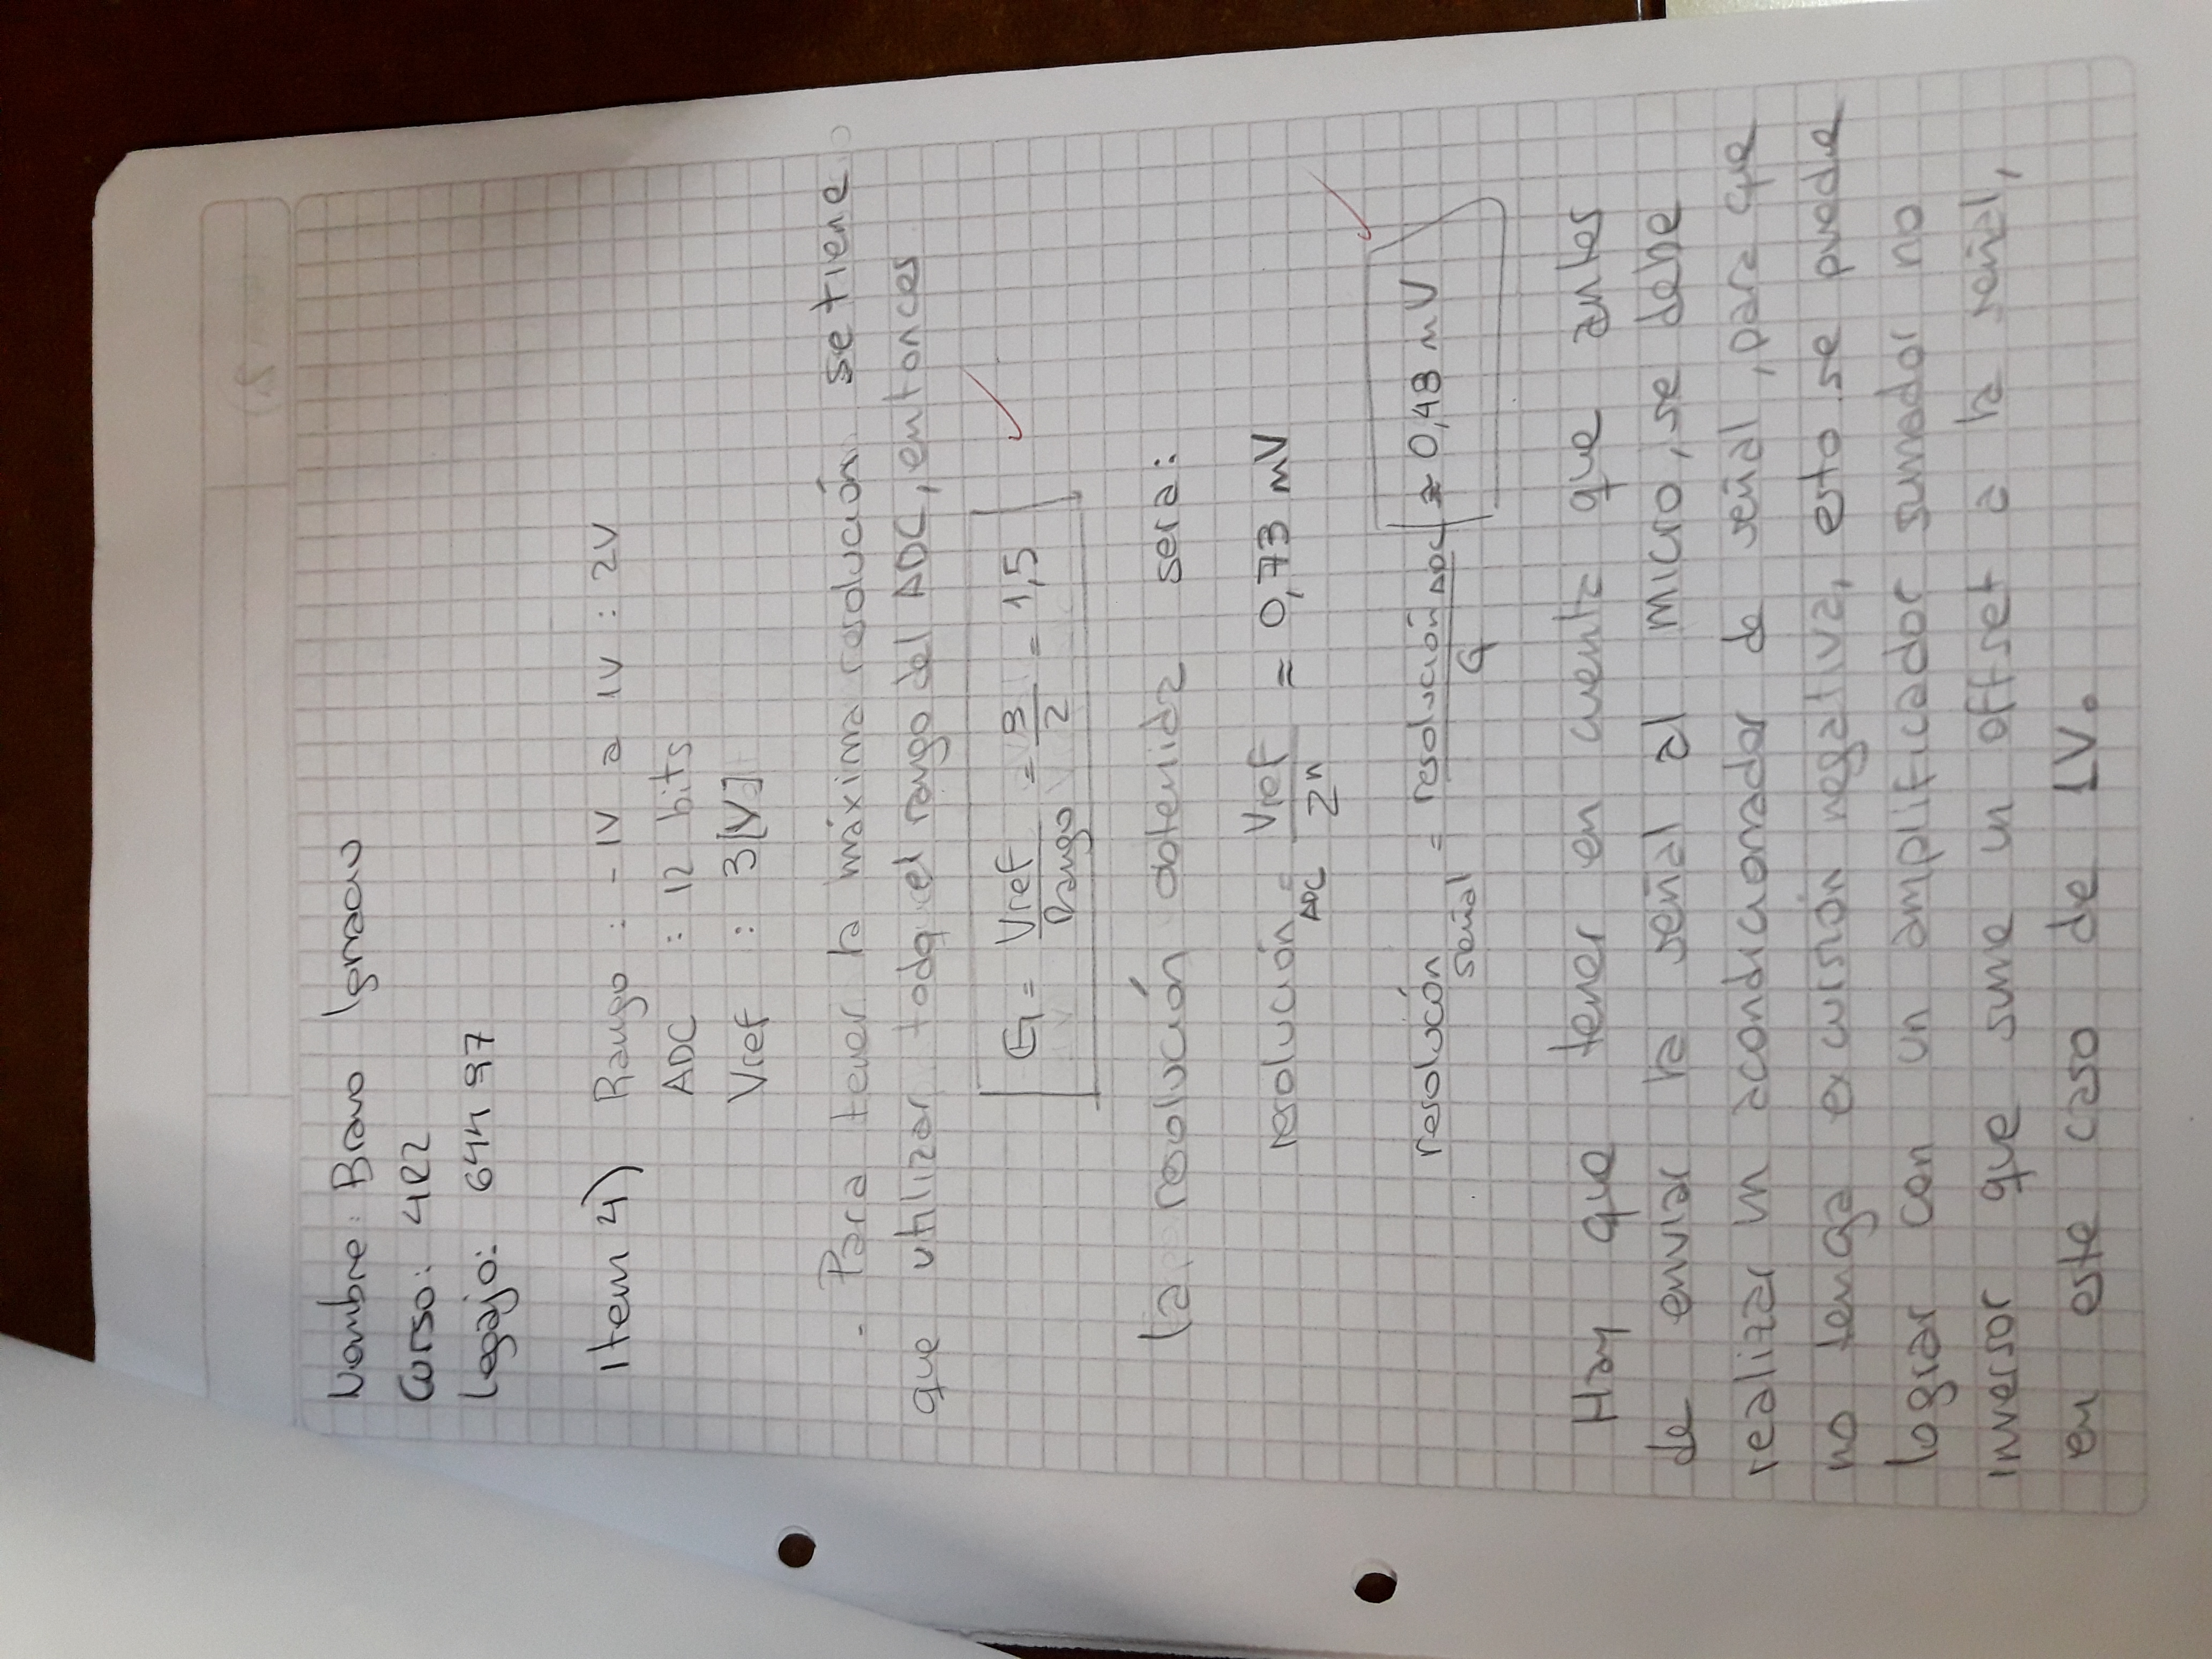 Nombre: Bravo Ignacio
Curso: 4R2
Legajo: 64497
Item 4) Rango : -1V a 1V : 2V
ADC : 12 bits
Vref : 3[V]
- Para tener la máxima resolución se tiene
que utilizar todo el rango del ADC, entonces
G = Vref / Rango = 3 / 2 = 1,5
la resolución obtenida sera:
resolución ADC = Vref / 2^n = 0,73 mV
resolucón señal = resolución ADC / G ≈ 0,48 mV
Hay que tener en cuenta que antes
de enviar la señal al micro, se debe
realizar un acondicionador de señal, para que
no tenga excursión negativa, esto se puede
lograr con un amplificador sumador no
inversor que sume un offset a la señal,
en este caso de 1V.